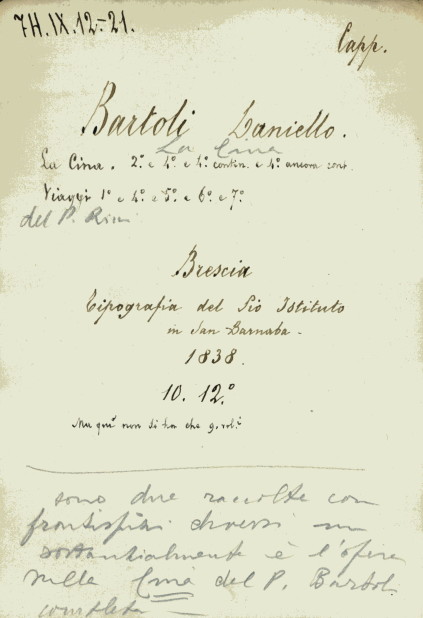 7H.IX.12-21.
Capp.
Bartoli Daniello.
La Cina
La Cina. 2º. e 4º. e 4º. contin. e 4º. ancora cont.
Viaggi 1º e 4º. e 5º. e 6º. e 7º.
del P. Ricci
Brescia
Tipografia del Pio Istituto
in San Barnaba.
1838.
10. 12.º
Ma quì non si ha che 9. vol.i
sono due raccolte con
frontispizi diversi ma
sostanzialmente è l'opera
sulla Cina del P. Bartoli
completa